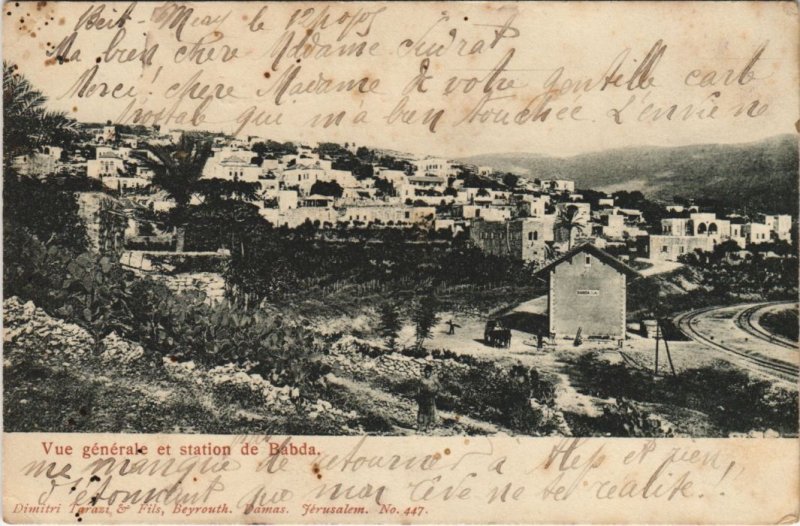 Beit-Mery le
Ma bien chère Madame
Merci! chère Madame de votre gentille carte
qui m'a bien touchée L'envie ne
BABDA
Vue générale et station de Babda.
me manque de retourner à et rien
d'étonnant que mon rêve ne set realité!
Dimitri Tarazi & Fils, Beyrouth. Damas. Jérusalem. No. 447.